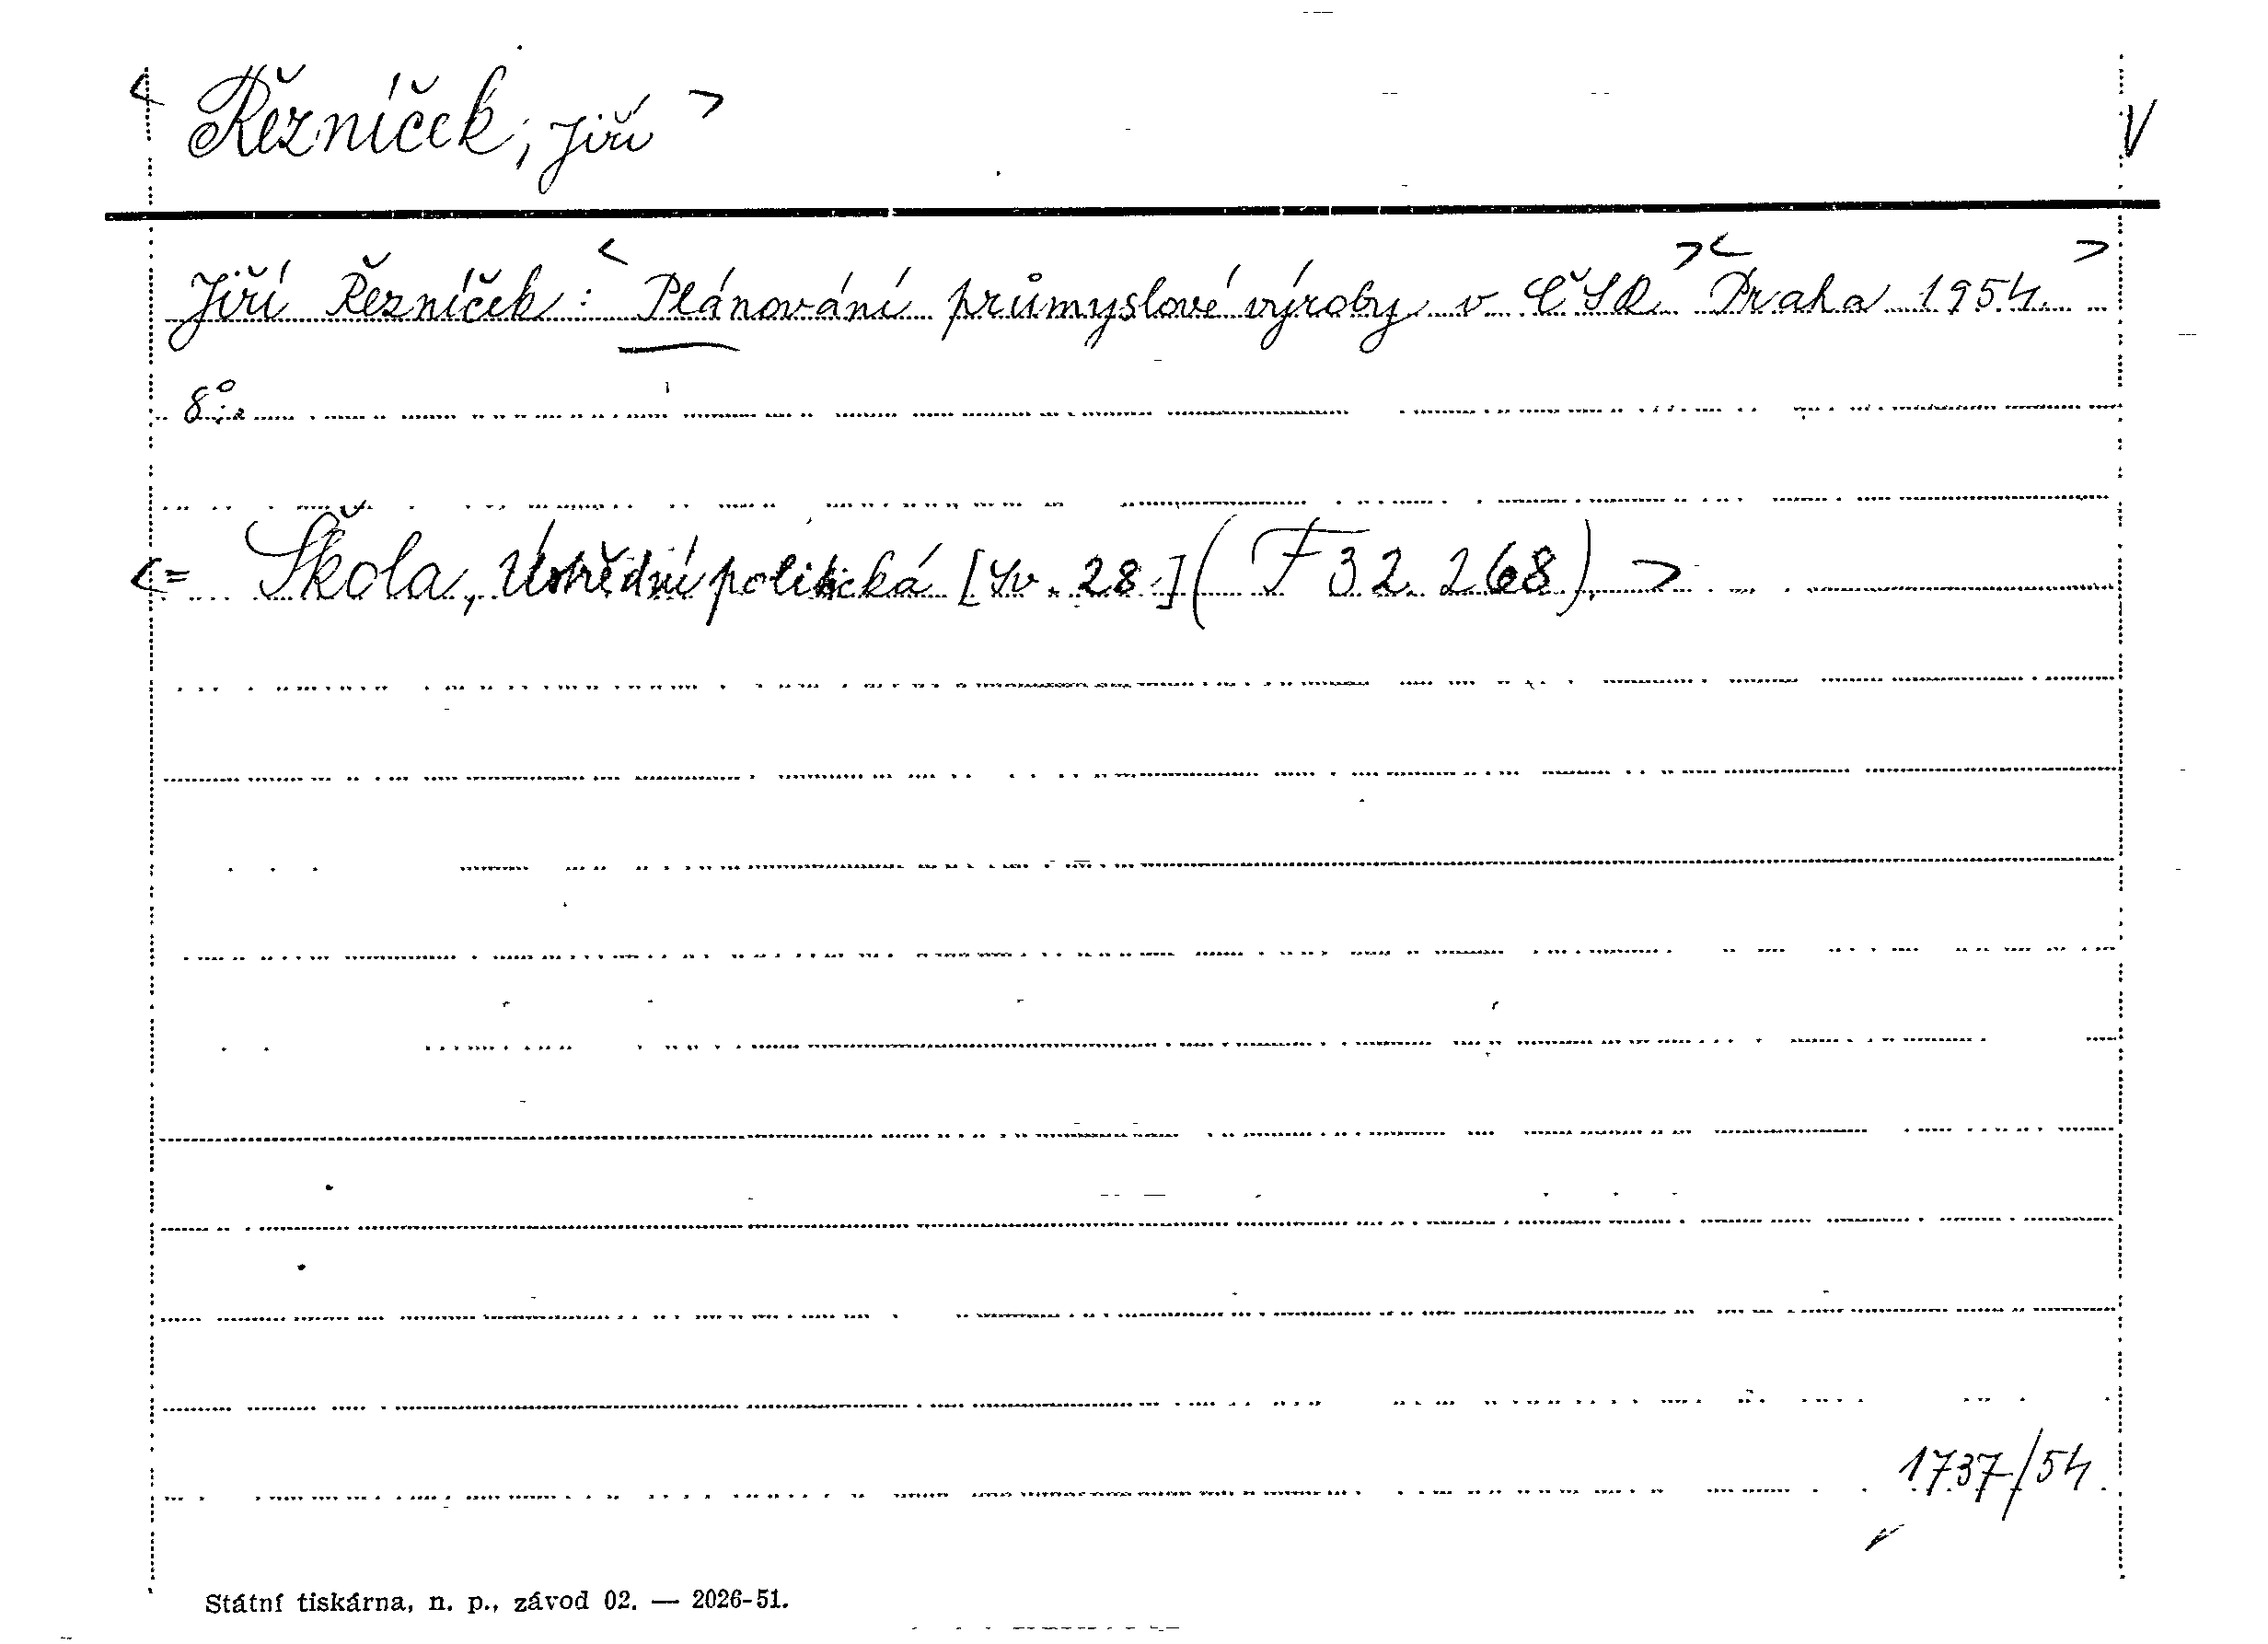 < Řezníček, Jiří > V
Jiří Řezníček: < Plánování průmyslové výroby v ČSR. >< Praha 1954. >
8°.
<= Škola, Ústřední politická [Sv. 28.] (F 32.268). >
1737/54.
Státní tiskárna, n. p., závod 02. — 2026-51.